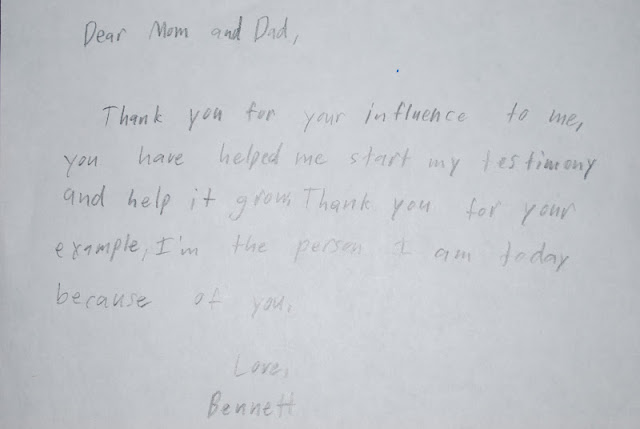 Dear Mom and Dad,
Thank you for your influence to me,
you have helped me start my testimony
and help it grow. Thank you for your
example, I'm the person I am today
because of you.
Love,
Bennett